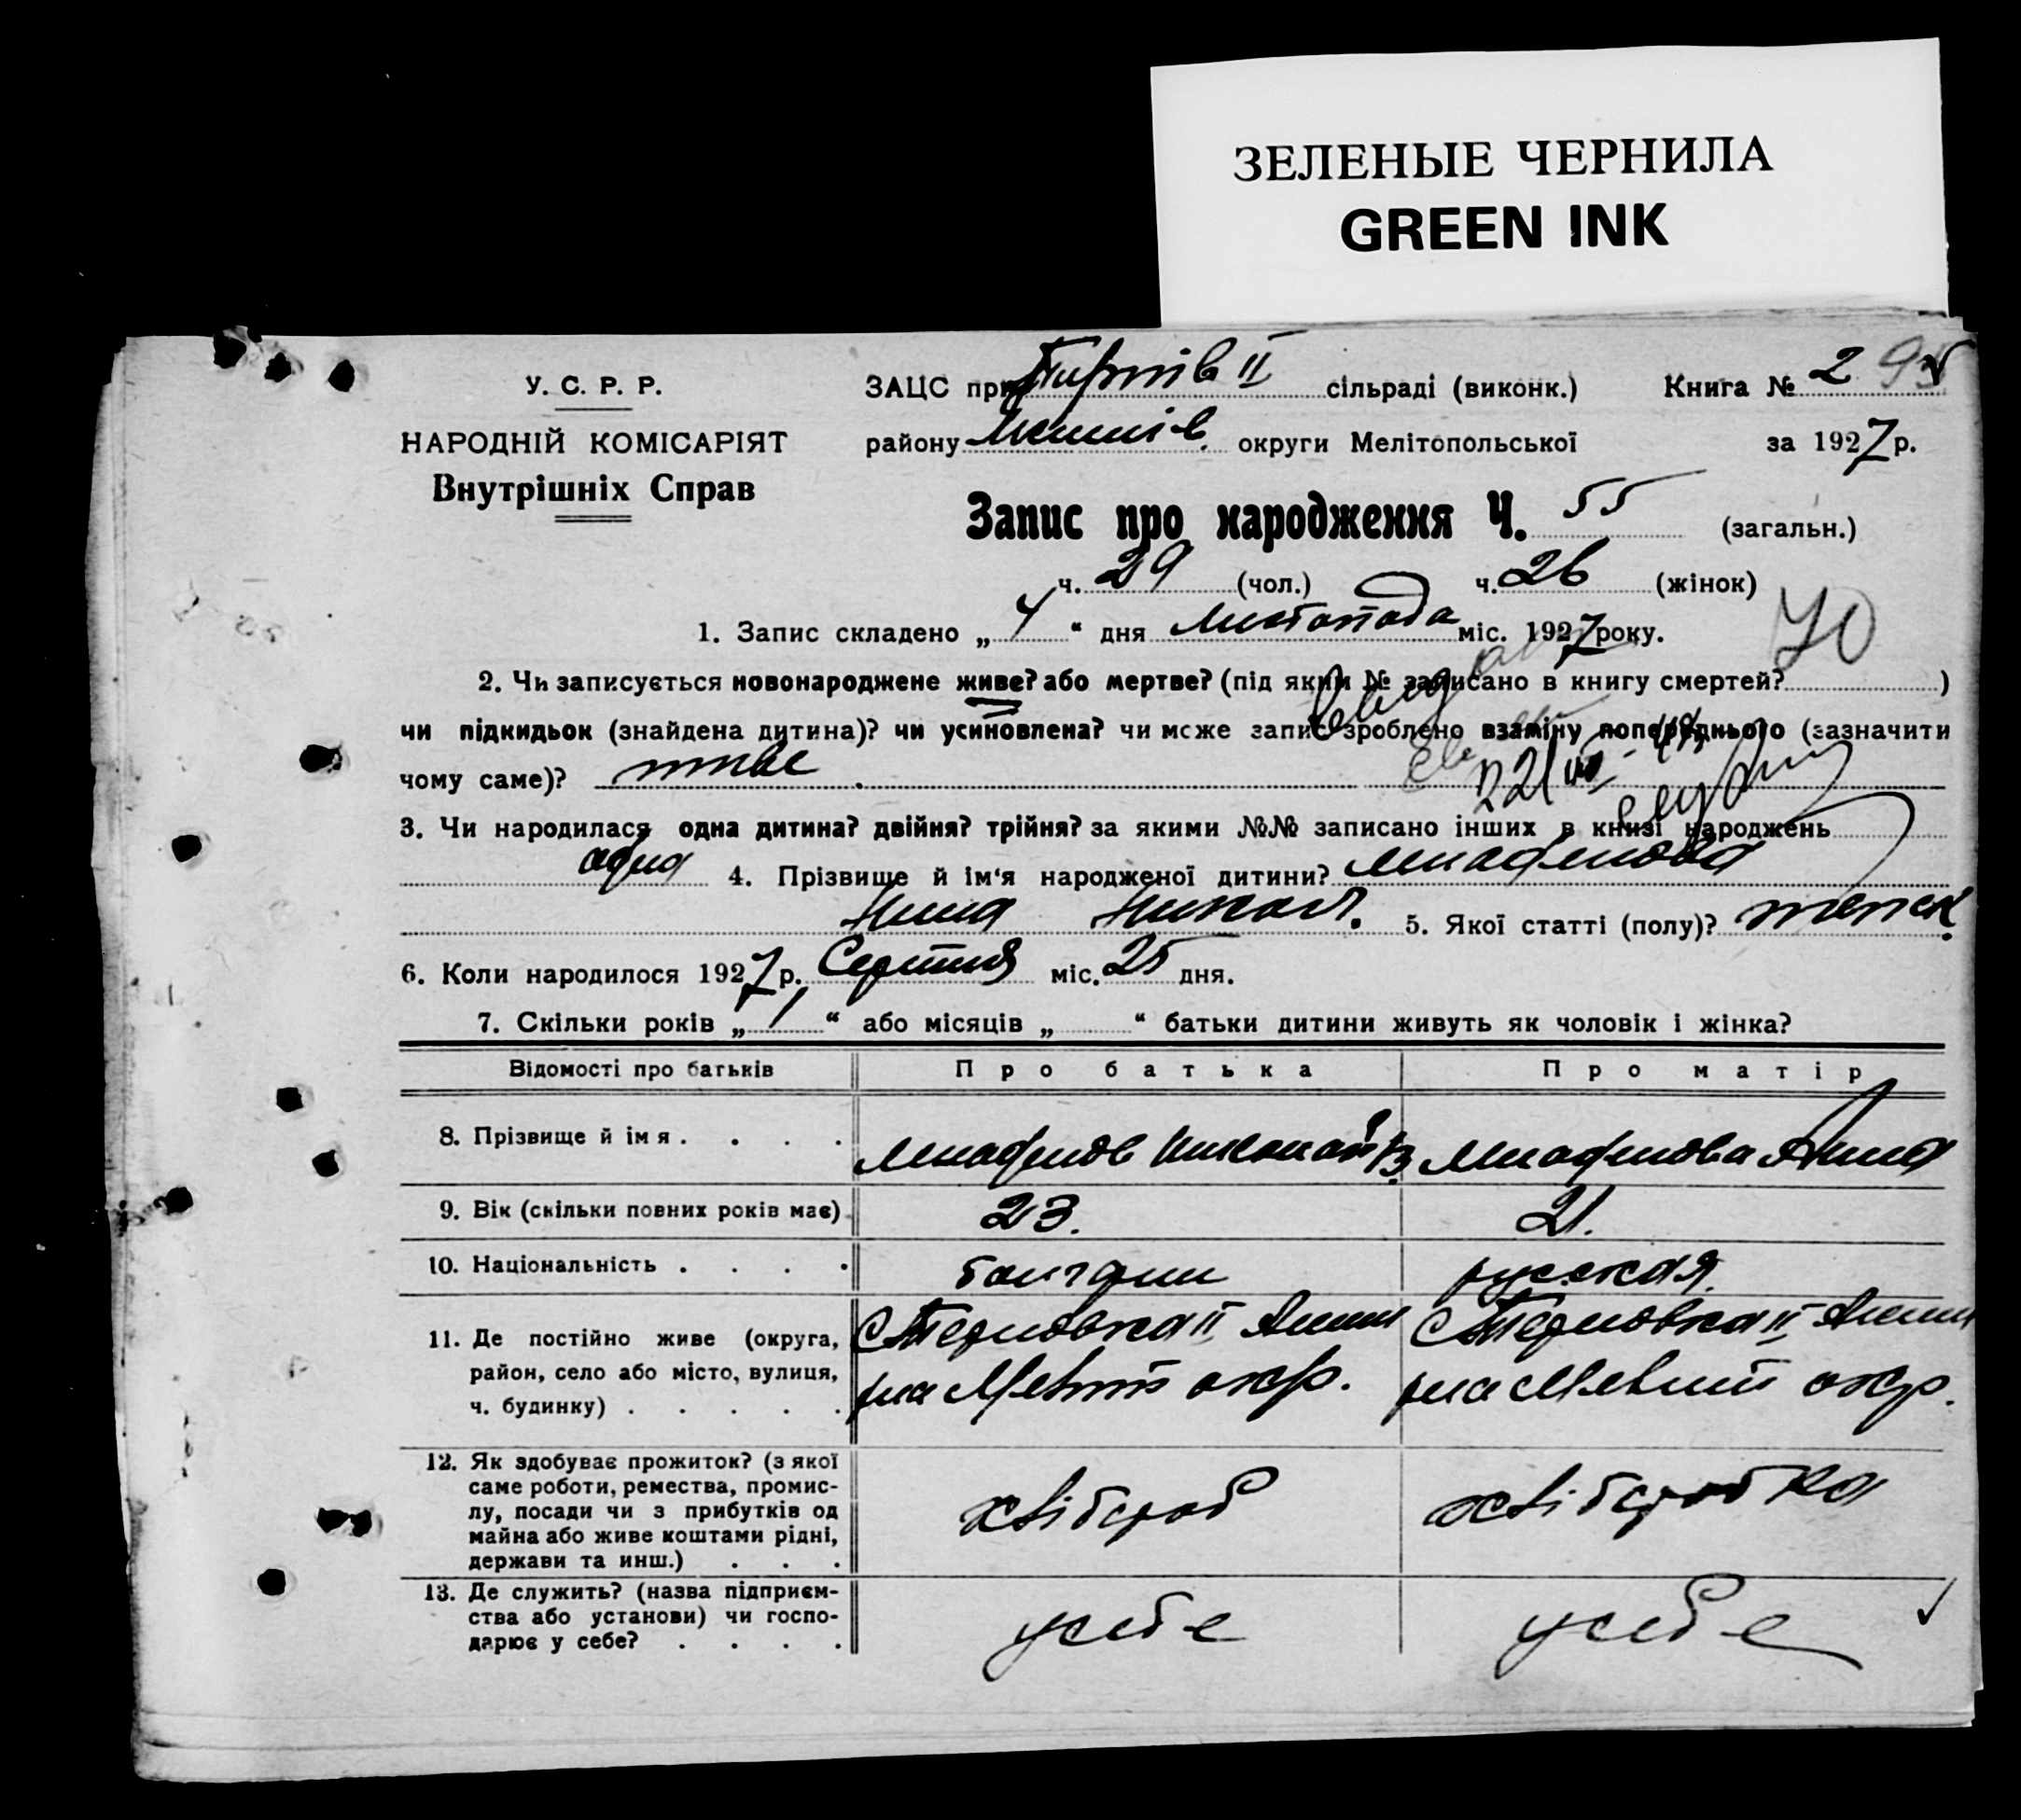 ЗЕЛЕНЫЕ ЧЕРНИЛА
GREEN INK
У. С. Р. Р.
НАРОДНІЙ КОМІСАРІЯТ
Внутрішніх Справ
ЗАЦС при II сільраді (виконк.) Книга № 2
району округи Мелітопольської за 1927 р.
Запис про народження Ч. 55 (загальн.)
ч. 29 (чол.) ч. 26 (жінок)
1. Запис складено „ 4 “ дня листопада міс. 1927 року.
70
2. Чи записується новонароджене живе? або мертве? (під яким № записано в книгу смертей? )
чи підкидьок (знайдена дитина)? чи усиновлена? чи може запис зроблено взаміну попереднього (зазначити
чому саме)? живе
3. Чи народилася одна дитина? двійня? трійня? за якими №№ записано інших в книзі народжень
одна 4. Прізвище й ім‘я народженої дитини?
Нина Никол. 5. Якої статті (полу)? женск.
6. Коли народилося 1927 р. Серпня міс. 25 дня.
7. Скільки років „ 1 “ або місяців „ “ батьки дитини живуть як чоловік і жінка?
Відомості про батьків Про батька Про матір
8. Прізвище й імя . . . . Николай Анна
9. Вік (скільки повних років має) 23. 21.
10. Національність . . . . болгарин русская
11. Де постійно живе (округа, С Терновка II С Терновка II
район, село або місто, вулиця, р-на окр. р-на окр.
ч. будинку) . . . . .
12. Як здобуває прожиток? (з якої
саме роботи, ремества, промис-
лу, посади чи з прибутків од хлібороб хліборобка
майна або живе коштами рідні,
держави та инш.) . . .
13. Де служить? (назва підприєм-
ства або установи) чи госпо- усебе усебе
дарює у себе? . . . .